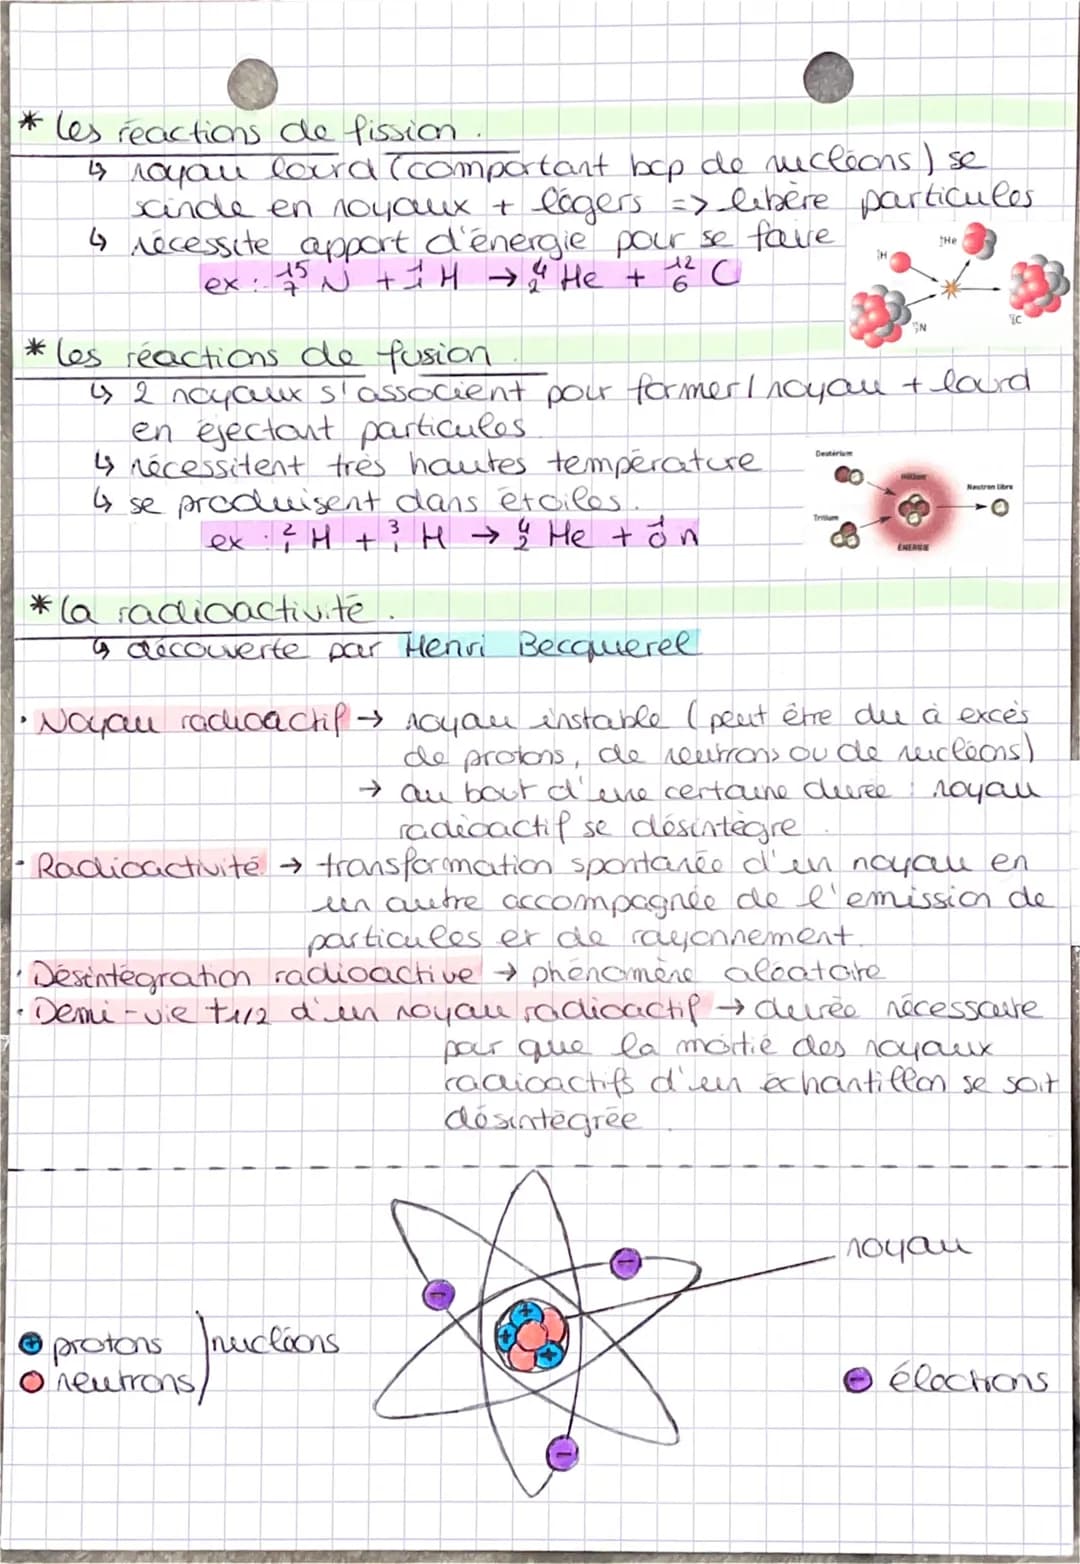 * Les réactions de fission.
↳ noyau lourd (comportant bcp de nucléons) se
scinde en noyaux + légers => libère particules
↳ nécessite apport d'énergie pour se faire
ex : ¹⁵₇N + ¹₁H → ⁴₂He + ¹²₆C
¹₁H
⁴₂He
¹⁵₇N
¹²₆C
* Les réactions de fusion.
↳ 2 noyaux s'associent pour former 1 noyau + lourd
en éjectant particules
↳ nécessitent très hautes température
↳ se produisent dans étoiles.
ex : ²₁H + ³₁H → ⁴₂He + ¹₀n
Deutérium
Hélium
Neutron libre
Tritium
ÉNERGIE
* La radioactivité.
↳ découverte par Henri Becquerel
· Noyau radioactif → noyau instable (peut être du à excès
de protons, de neutrons ou de nucléons)
→ au bout d'une certaine durée : noyau
radioactif se désintègre.
· Radioactivité → transformation spontanée d'un noyau en
un autre accompagnée de l'émission de
particules et de rayonnement.
· Désintégration radioactive → phénomène aléatoire
· Demi-vie t1/2 d'un noyau radioactif → durée nécessaire
pour que la moitié des noyaux
radioactifs d'un échantillon se soit
désintégrée.
noyau
+ protons
nucléons
neutrons
- électrons